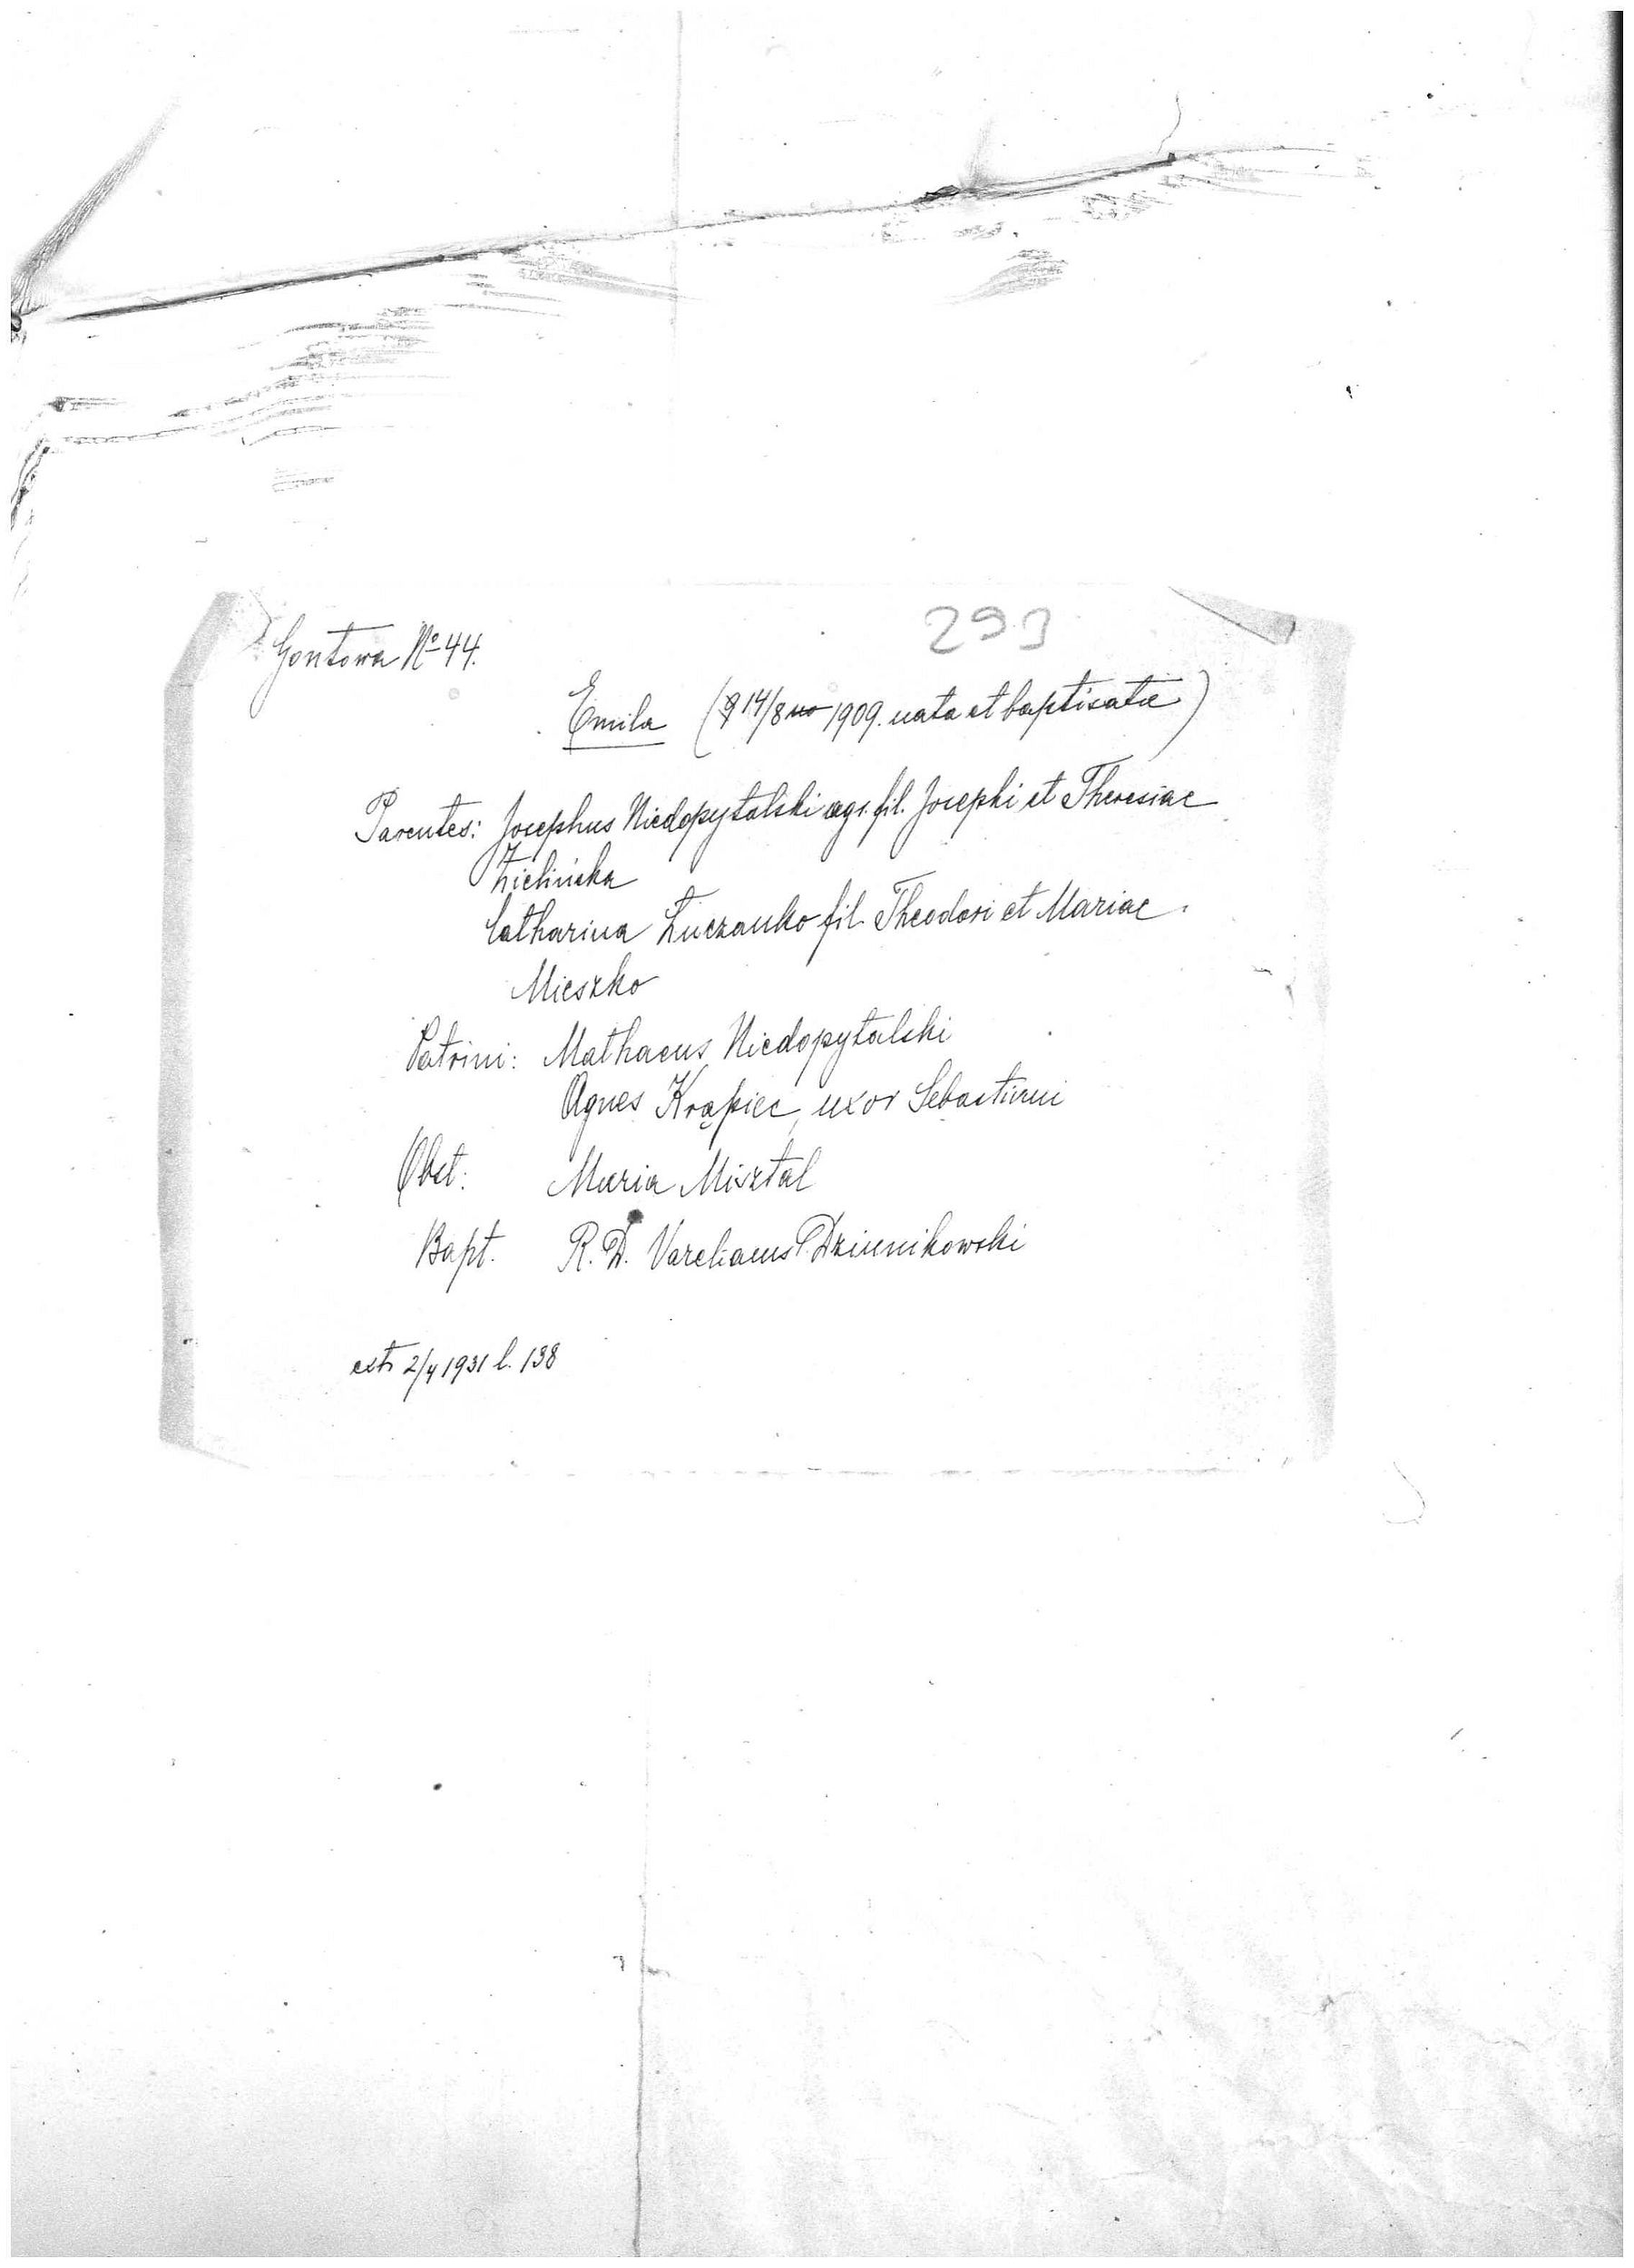 Gontowa No 44.
293
Emila (14/8 1909. nata et baptisata)
Parentes: Josephus Niedopytalski agr. fil. Josephi et Theresiae
Zielińska
Catharina Łuczanko fil. Theodori et Mariae
Mieszko
Patrini: Mathaeus Niedopytalski
Agnes Krąpiec, uxor Sebastiani
Obst: Maria Misztal
Bapt. R. D. Dziunikowski
extr 2/4 1931 l. 138